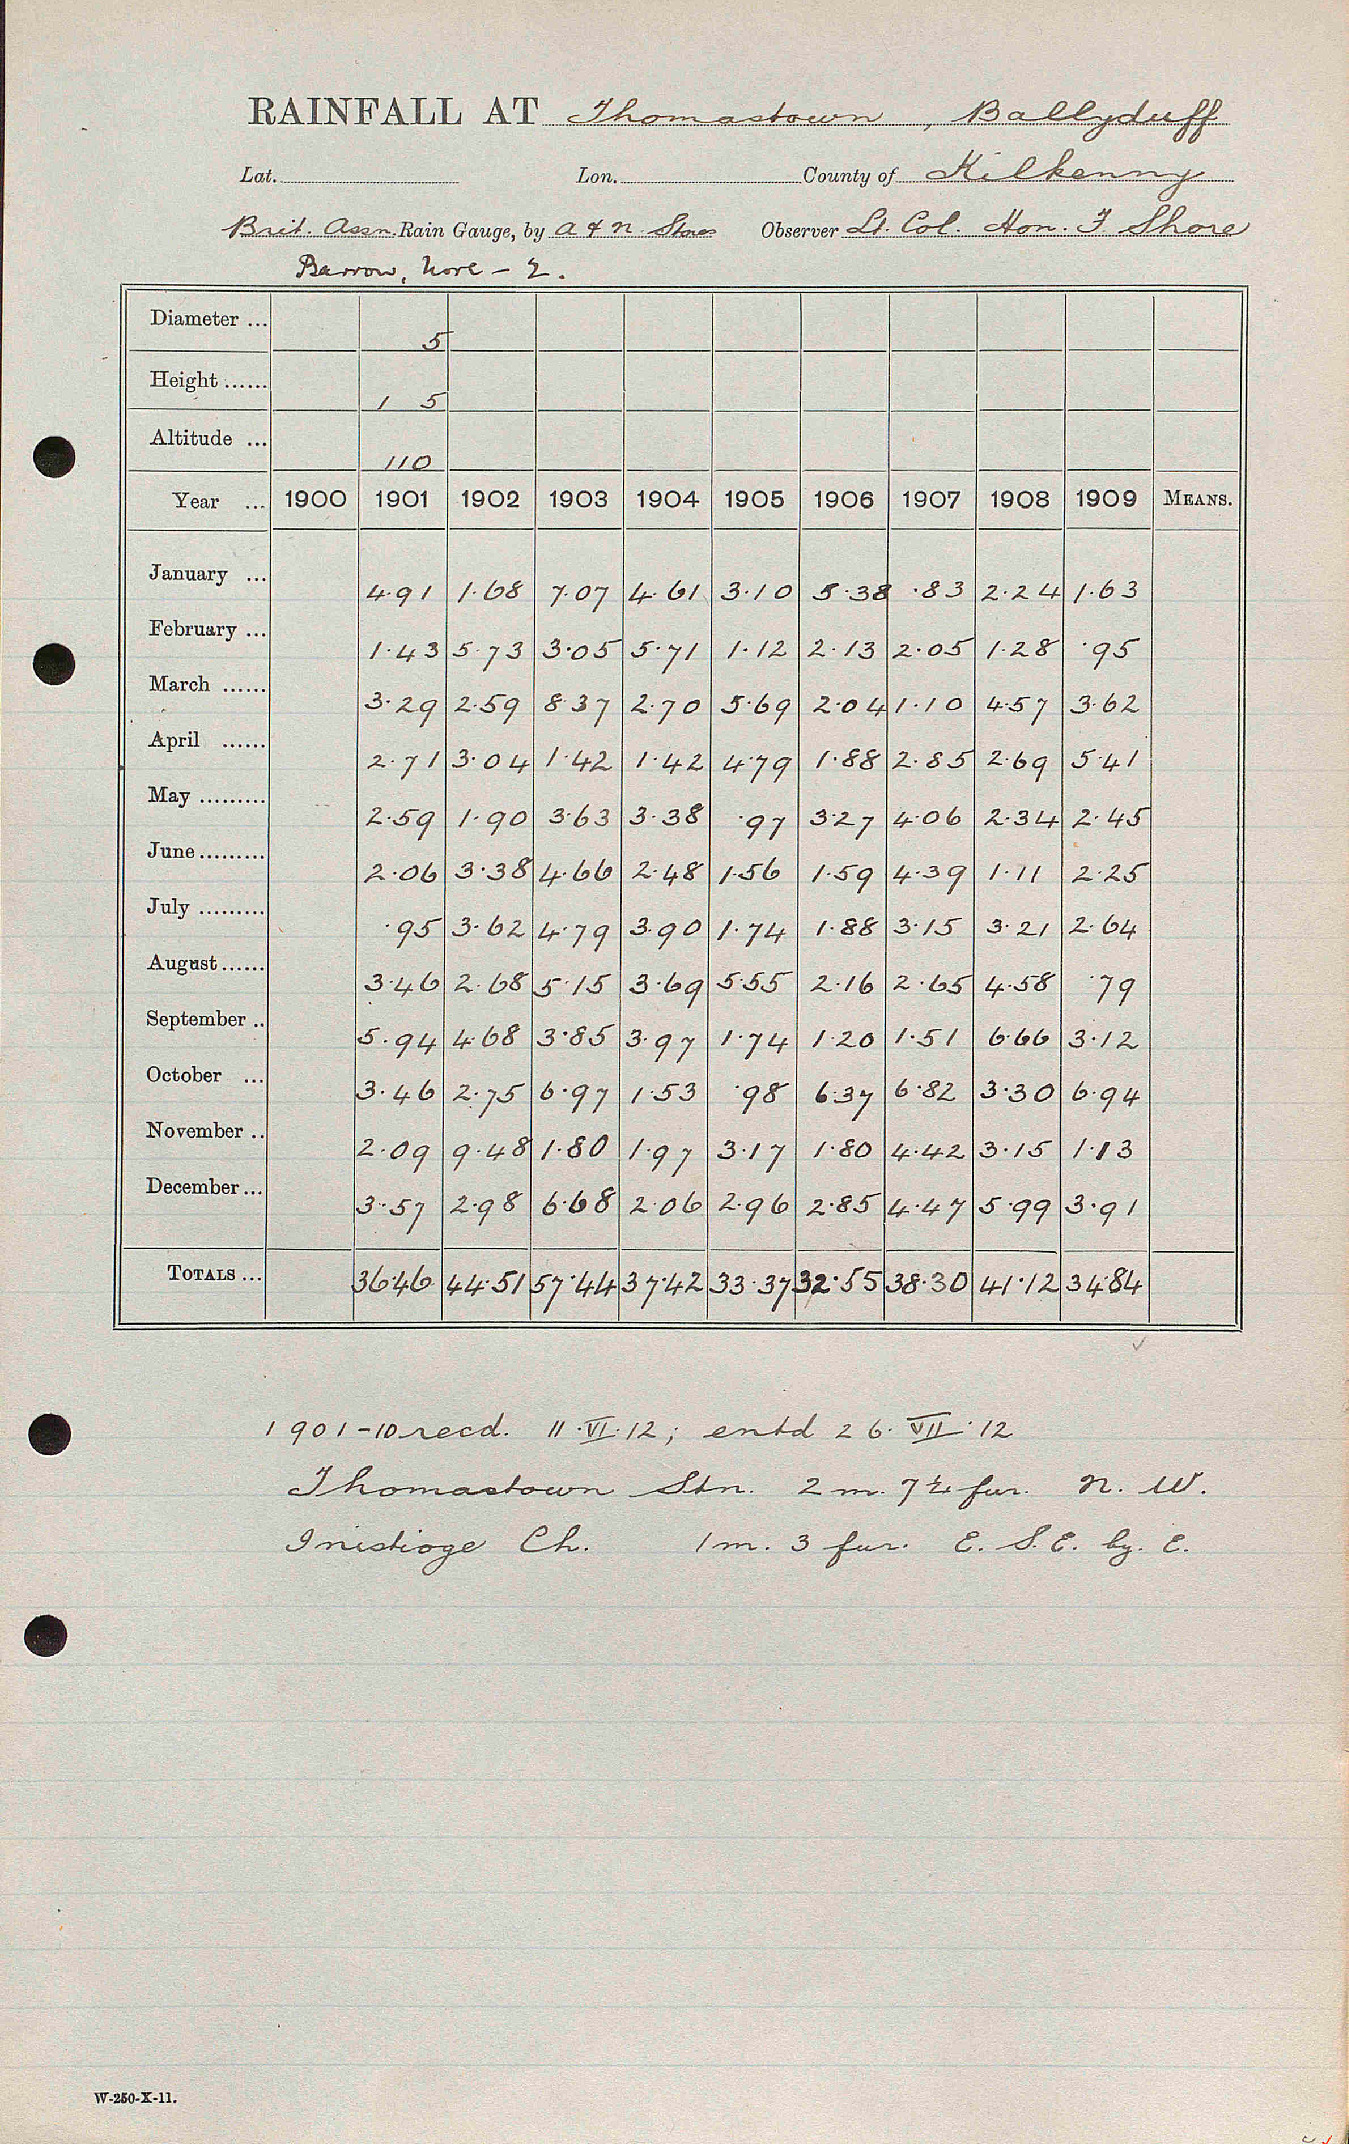 RAINFALL AT Thomastown, Ballyduff
Lat. Lon. County of Kilkenny
Brit. Assn. Rain Gauge, by A & N. Stores Observer Lt. Col. Hon. F Shore
Barrow, Nore - 2.
Diameter ... 5
Height ...... 1 5
Altitude ... 110
Year ... 1900 1901 1902 1903 1904 1905 1906 1907 1908 1909 MEANS.
January ... 4.91 1.68 7.07 4.61 3.10 5.38 .83 2.24 1.63
February ... 1.43 5.73 3.05 5.71 1.12 2.13 2.05 1.28 .95
March ...... 3.29 2.59 8.37 2.70 5.69 2.04 1.10 4.57 3.62
April ...... 2.71 3.04 1.42 1.42 4.79 1.88 2.85 2.69 5.41
May ......... 2.59 1.90 3.63 3.38 .97 3.27 4.06 2.34 2.45
June ......... 2.06 3.38 4.66 2.48 1.56 1.59 4.39 1.11 2.25
July ......... .95 3.62 4.79 3.90 1.74 1.88 3.15 3.21 2.64
August ...... 3.46 2.68 5.15 3.69 5.55 2.16 2.65 4.58 .79
September .. 5.94 4.68 3.85 3.97 1.74 1.20 1.51 6.66 3.12
October ... 3.46 2.75 6.97 1.53 .98 6.37 6.82 3.30 6.94
November .. 2.09 9.48 1.80 1.97 3.17 1.80 4.42 3.15 1.13
December ... 3.57 2.98 6.68 2.06 2.96 2.85 4.47 5.99 3.91
TOTALS ... 36.46 44.51 57.44 37.42 33.37 32.55 38.30 41.12 34.84
1901-10 recd. 11.VI.12; entd 26.VII.12
Thomastown Stn. 2 m. 7½ fur. N. W.
Inistioge Ch. 1 m. 3 fur. E. S. E. by. E.
W-250-X-11.